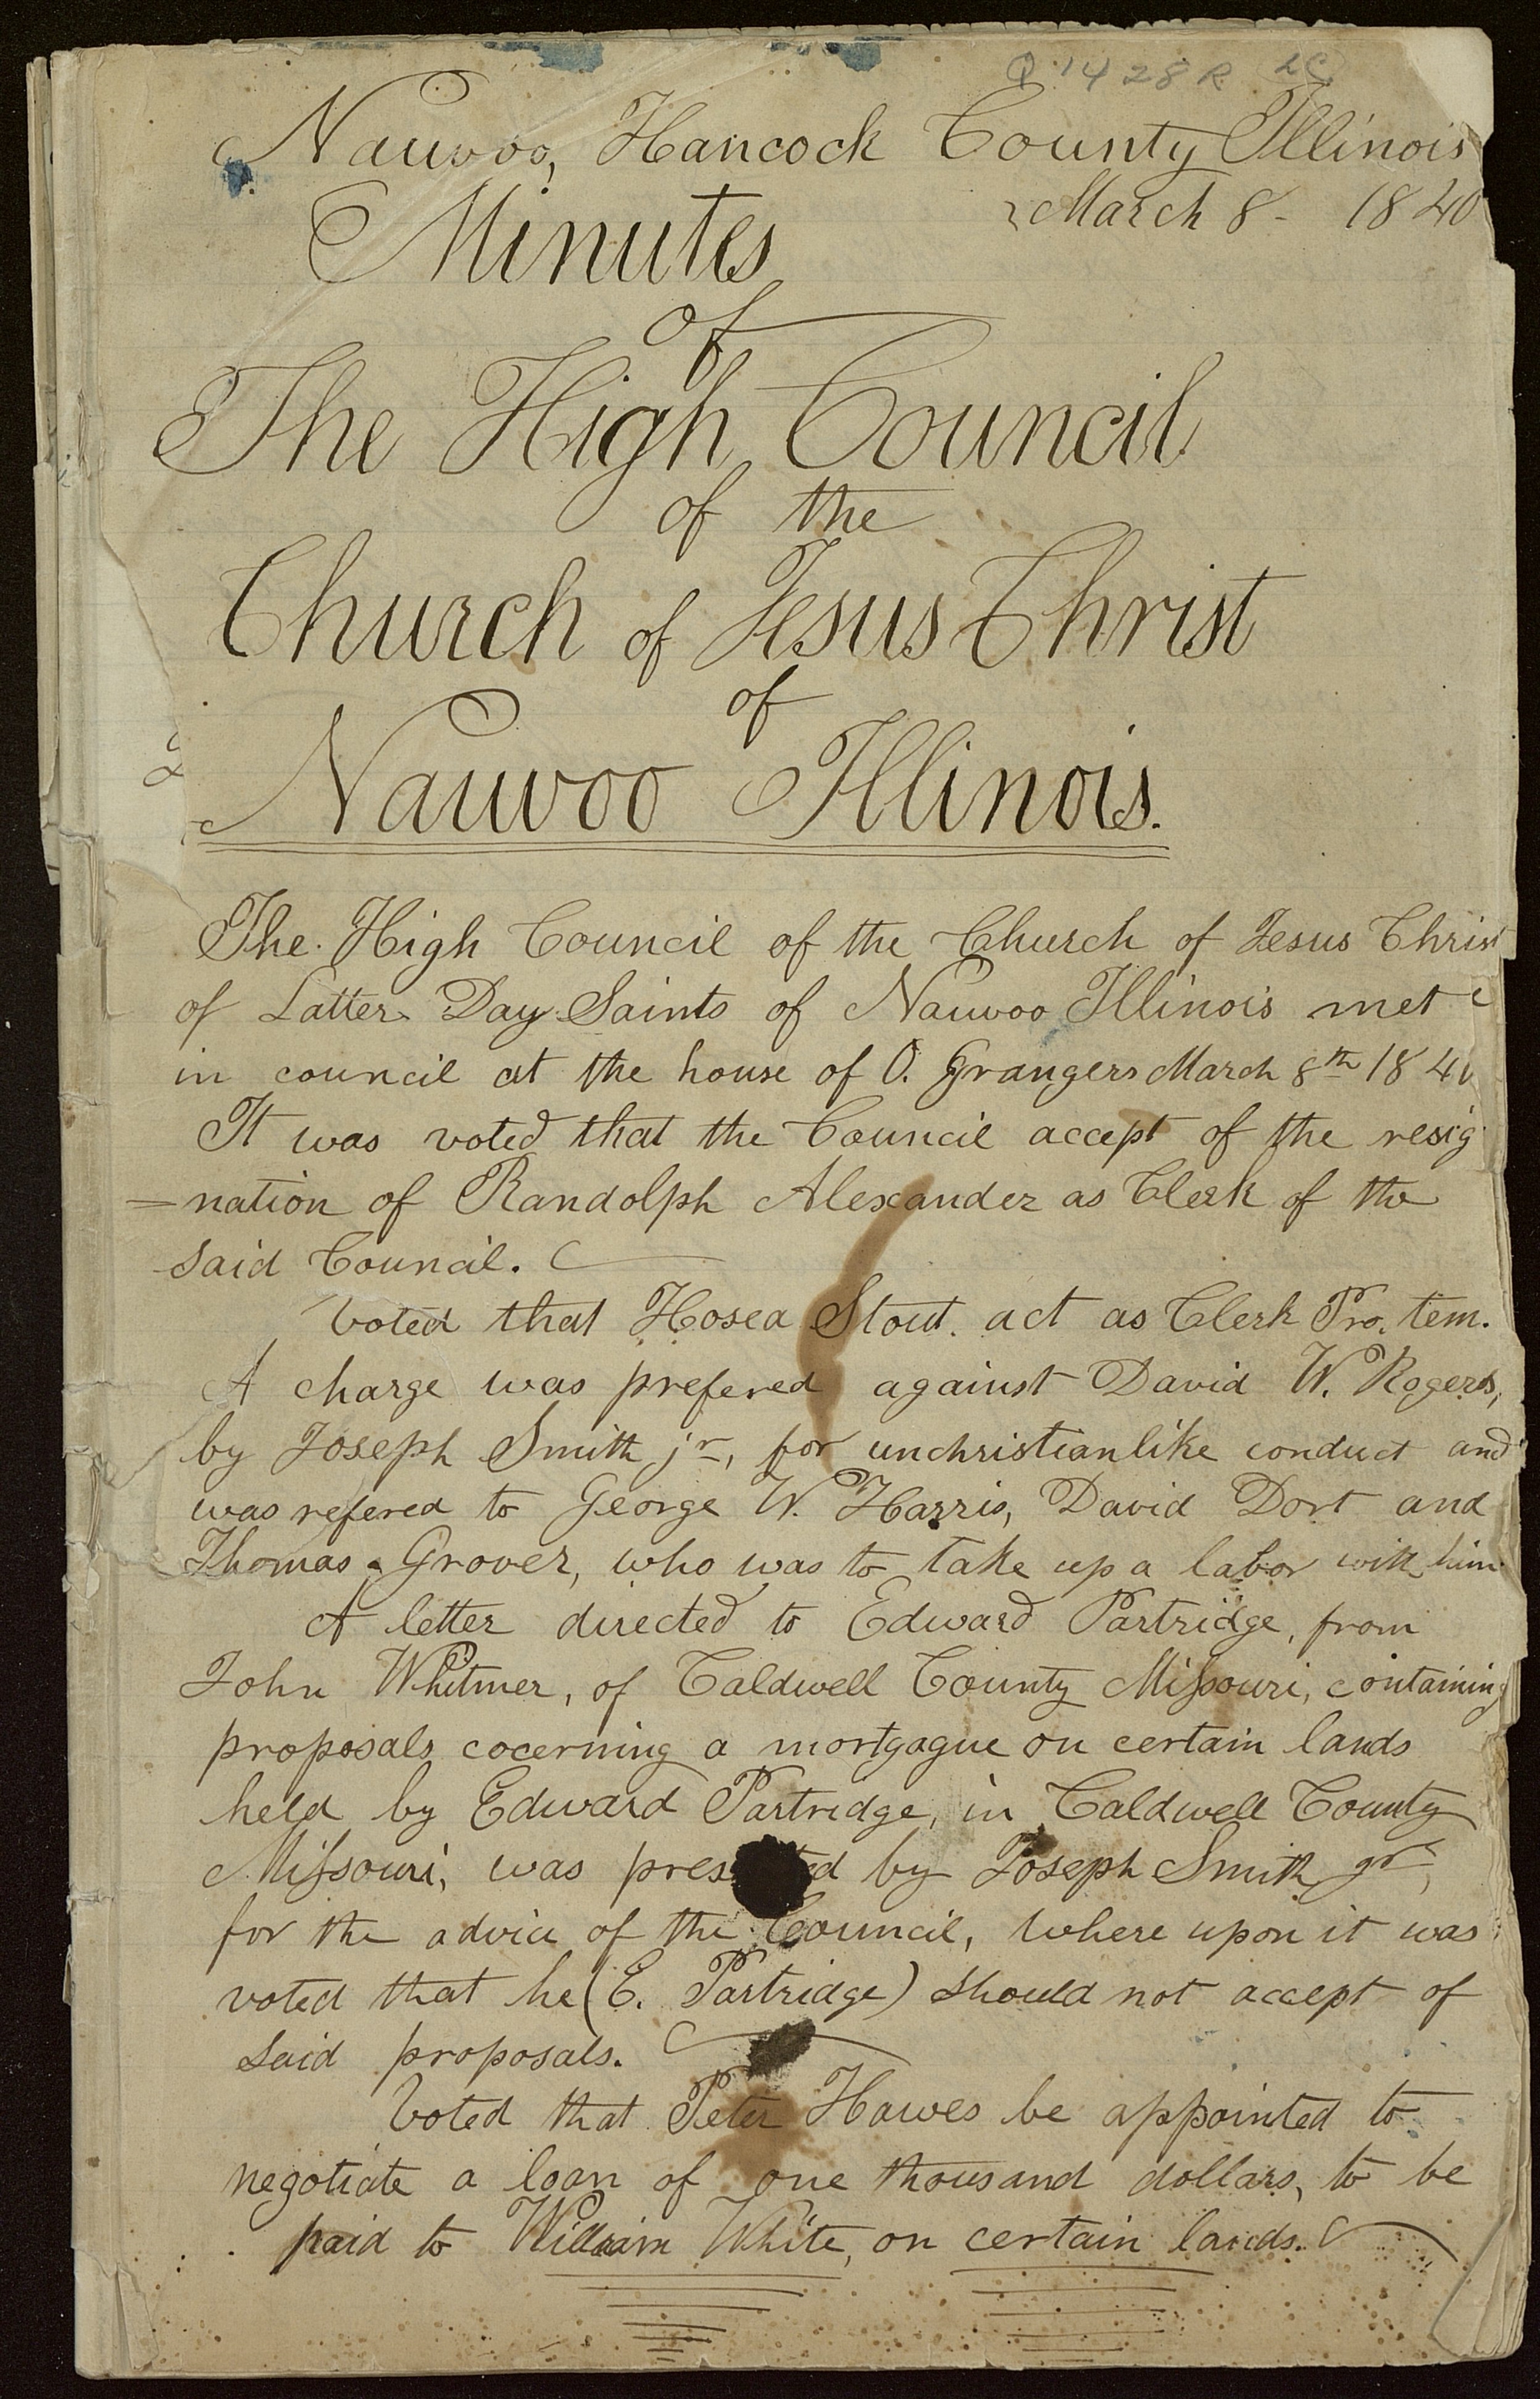 Q 1428 R
Nauvoo, Hancock County Illinois
March 8- 1840
Minutes
of
The High Council
of the
Church of Jesus Christ
of
Nauvoo Illinois.
The High Council of the Church of Jesus Christ
of Latter Day Saints of Nauvoo Illinois met
in council at the house of O. Grangers March 8th 1840
It was voted that the Council accept of the resig
=nation of Randolph Alexander as Clerk of the
said Council.
Voted that Hosea Stout. act as Clerk Pro. tem.
A charge was prefered against David W. Rogers,
by Joseph Smith jr, for unchristianlike conduct and
was refered to George W. Harris, David Dort and
Thomas Grover, who was to take up a labor with him
A letter directed to Edward Partridge, from
John Whitmer, of Caldwell County Missouri, containing
proposals cocerning a mortgague on certain lands
held by Edward Partridge, in Caldwell County
Missouri, was presented by Joseph Smith jr,
for the advice of the Council, Where upon it was
voted that he (E. Partridge) should not accept of
said proposals.
Voted that Peter Hawes be appointed to
negotiate a loan of one thousand dollars, to be
paid to William White, on certain lands.